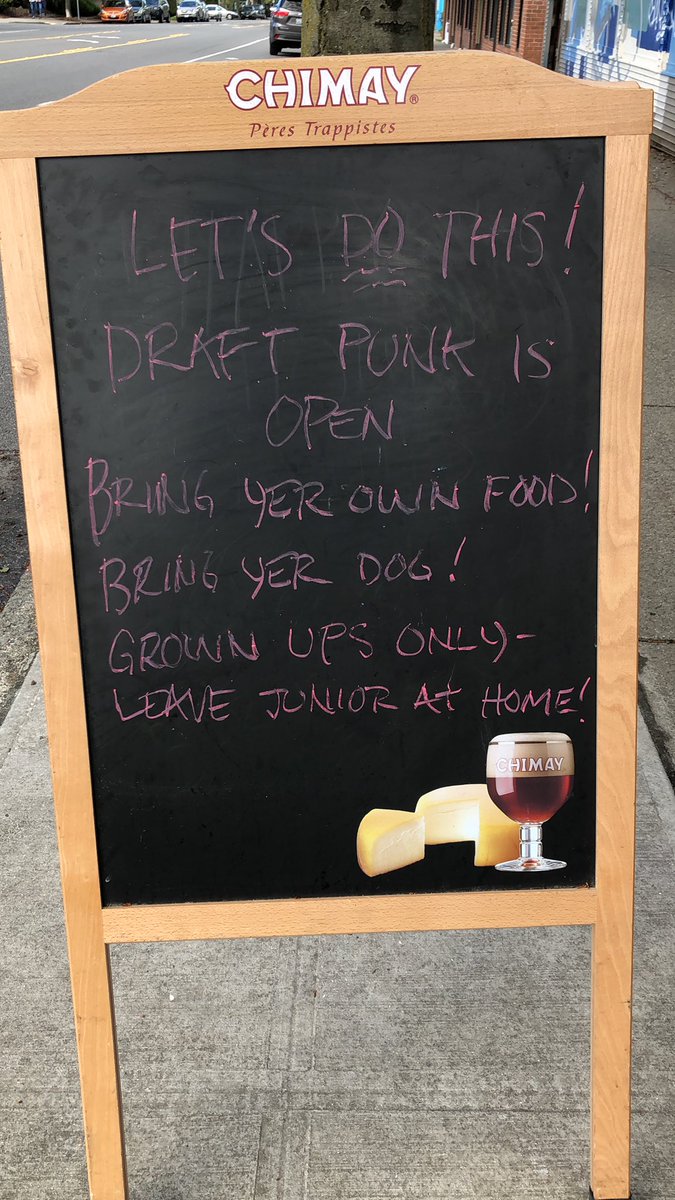 CHIMAY®
Pères Trappistes
LET'S DO THIS!
DRAFT PUNK IS
OPEN
BRING YER OWN FOOD!
BRING YER DOG!
GROWN UPS ONLY-
LEAVE JUNIOR AT HOME!
CHIMAY